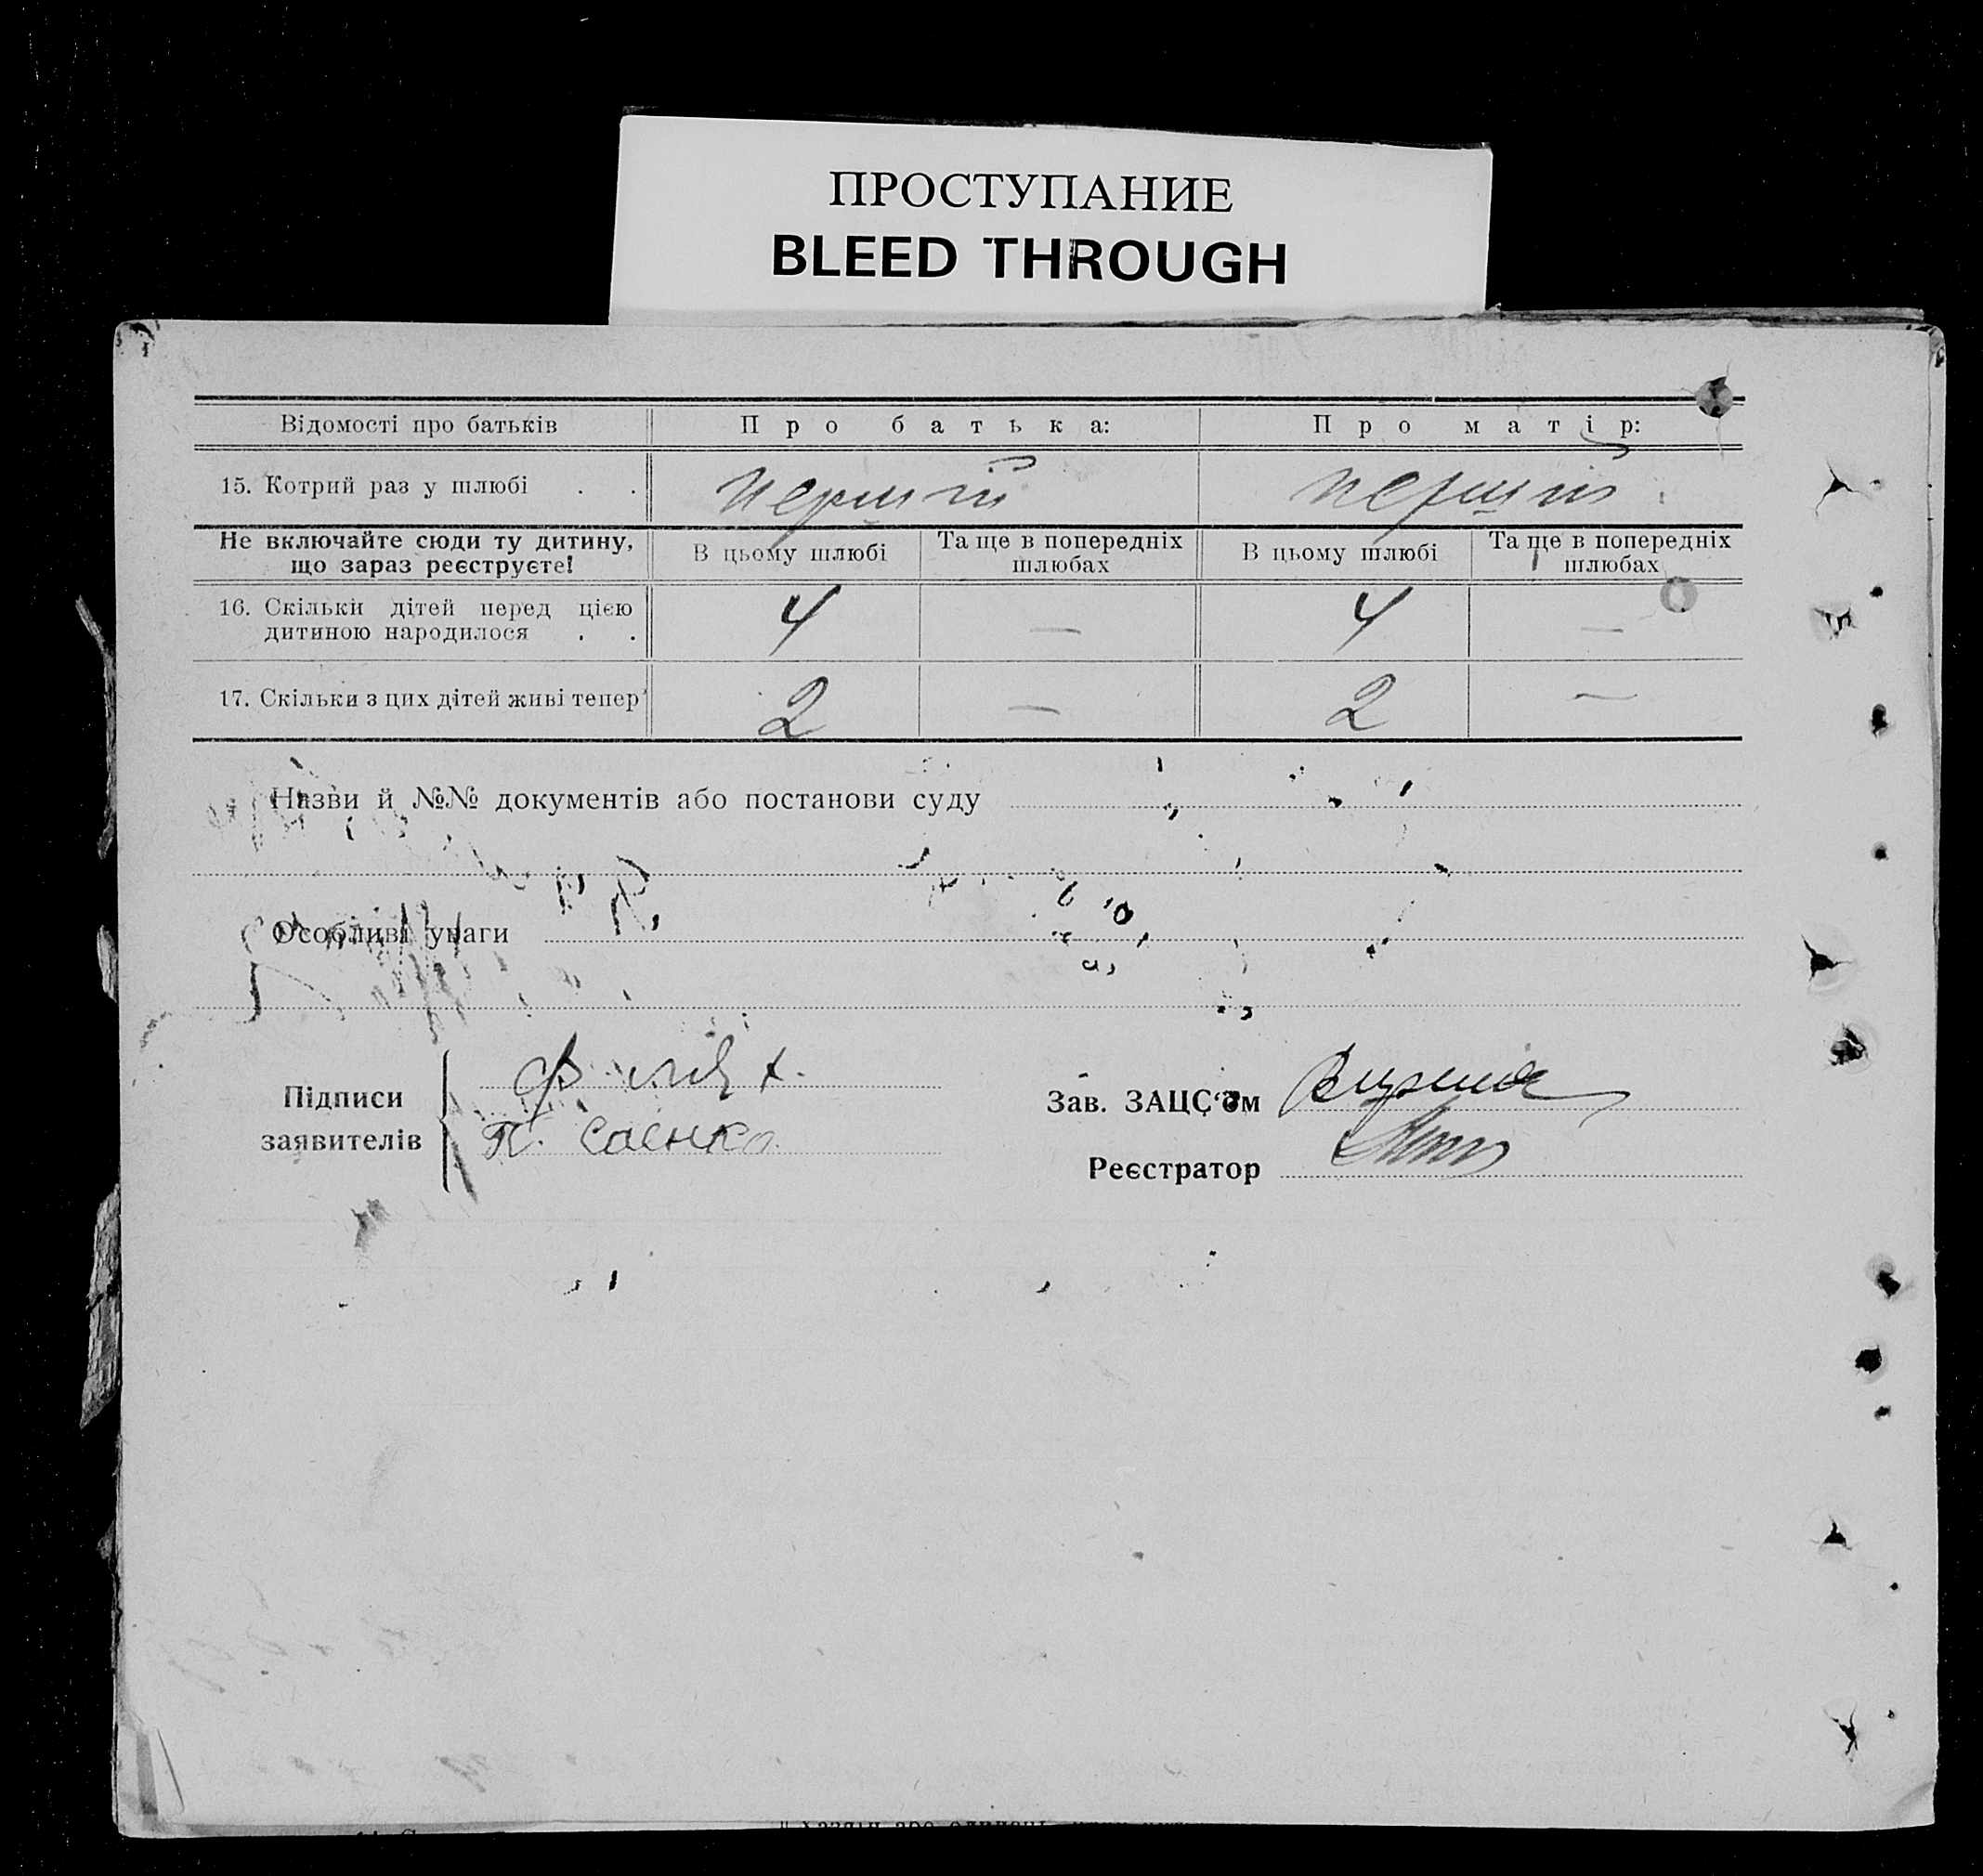 ПРОСТУПАНИЕ
BLEED THROUGH
Відомості про батьків Про батька: Про матір:
15. Котрий раз у шлюбі . . перший перший
Не включайте сюди ту дитину, що зараз реєструєте! В цьому шлюбі Та ще в попередніх шлюбах В цьому шлюбі Та ще в попередніх шлюбах
16. Скільки дітей перед цією дитиною народилося . . 4 — 4 —
17. Скільки з цих дітей живі тепер 2 — 2 —
Назви й №№ документів або постанови суду
Особливі уваги
Підписи заявителів
П. Саєнко
Зав. ЗАЦС'ом
Реєстратор